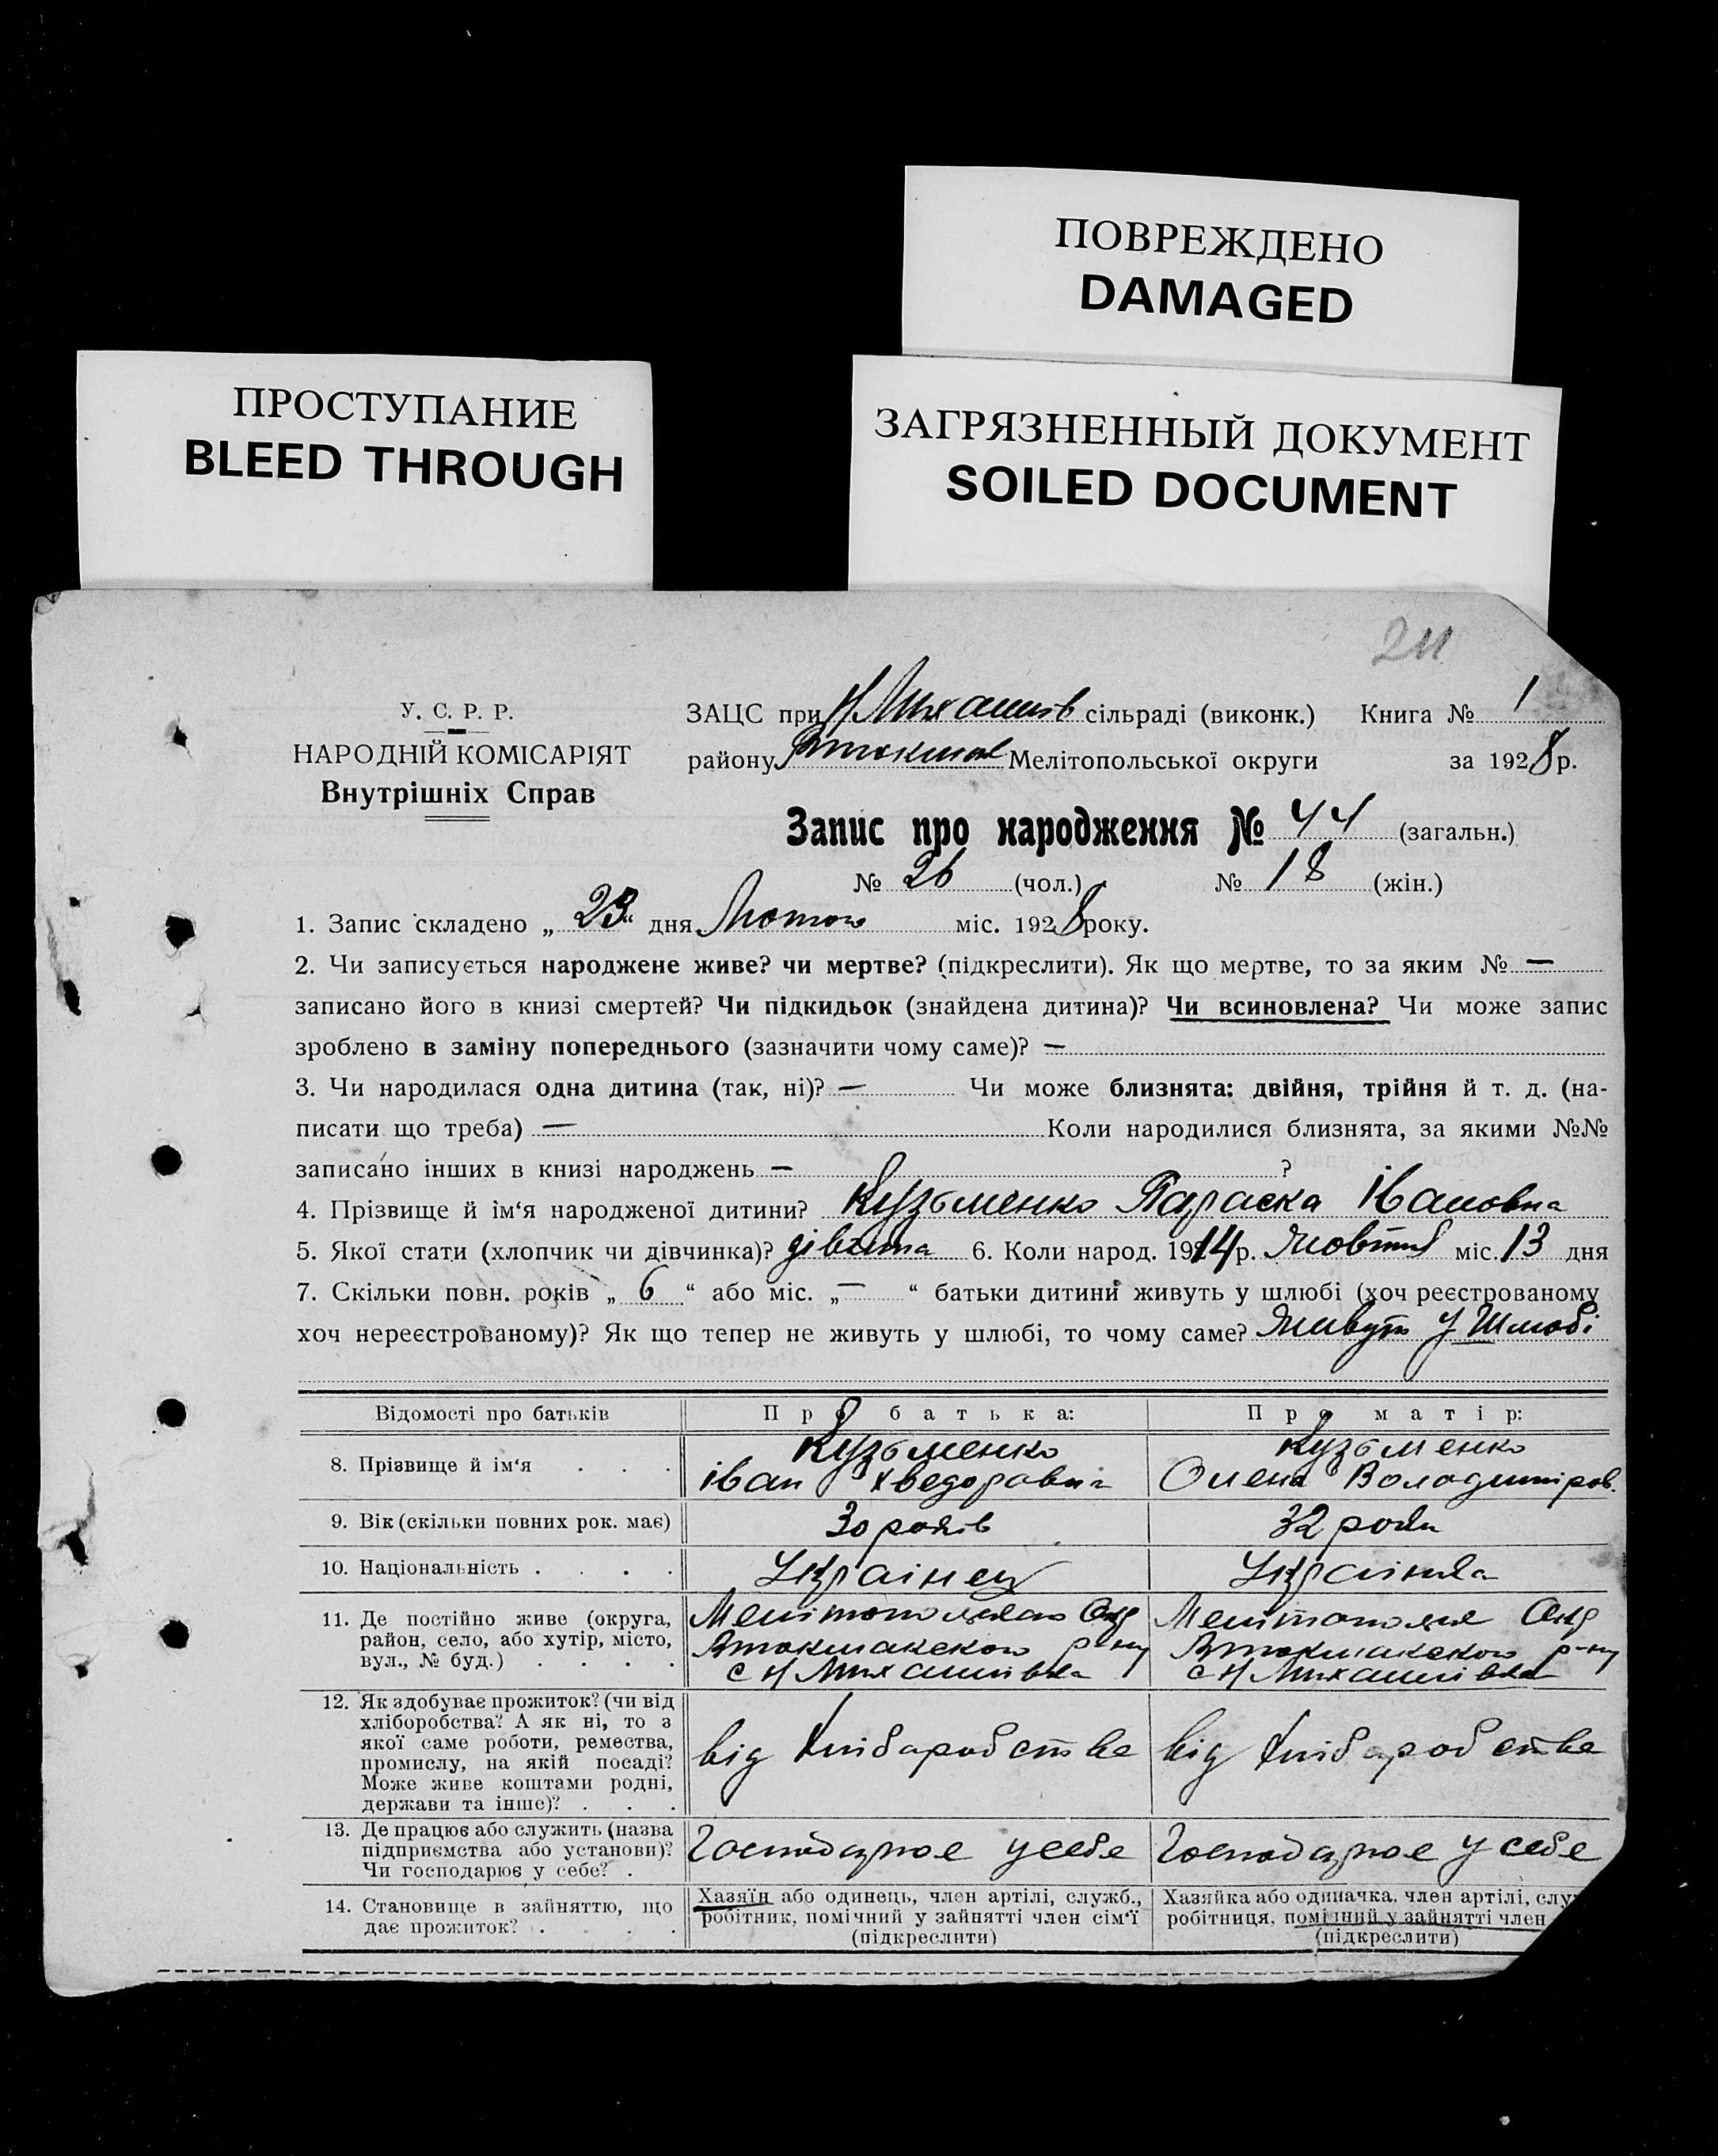 ПОВРЕЖДЕНО
DAMAGED
ПРОСТУПАНИЕ
BLEED THROUGH
ЗАГРЯЗНЕННЫЙ ДОКУМЕНТ
SOILED DOCUMENT
У. С. Р. Р.
НАРОДНІЙ КОМІСАРІЯТ
Внутрішніх Справ
ЗАЦС при Н Михайлів сільраді (виконк.) Книга № 1
району Втокмак Мелітопольської округи за 1928 р.
Запис про народження № 44 (загальн.)
№ 26 (чол.) № 18 (жін.)
1. Запис складено „ 23 “ дня Лютого міс. 1928 року.
2. Чи записується народжене живе? чи мертве? (підкреслити). Як що мертве, то за яким № —
записано його в книзі смертей? Чи підкидьок (знайдена дитина)? Чи всиновлена? Чи може запис
зроблено в заміну попереднього (зазначити чому саме)? —
3. Чи народилася одна дитина (так, ні)? — Чи може близнята: двійня, трійня й т. д. (на-
писати що треба) — Коли народилися близнята, за якими №№
записано інших в книзі народжень — ?
4. Прізвище й ім‘я народженої дитини? Кузьменко Параска Івановна
5. Якої стати (хлопчик чи дівчинка)? дівчина 6. Коли народ. 1914 р. Жовтня міс. 13 дня
7. Скільки повн. років „ 6 “ або міс. „ — “ батьки дитини живуть у шлюбі (хоч реєстрованому
хоч нереєстрованому)? Як що тепер не живуть у шлюбі, то чому саме? Живуть у Шлюбі
Відомості про батьків Про батька: Про матір:
8. Прізвище й ім‘я . . . Кузьменко Іван Хведорович Кузьменко Олена Володимиров.
9. Вік (скільки повних рок. має) 30 років 32 роки
10. Національність . . . . Українец Українка
11. Де постійно живе (округа, Мелітопольськ Окр Мелітопольск Окр
район, село, або хутір, місто, Втокмакського р-ну Втокмакского р-ну
вул., № буд.) . . . . с Н Михайлівка с Н Михайлівка
12. Як здобуває прожиток? (чи від
хліборобства? А як ні, то з
якої саме роботи, ремества, від Хліборобства від Хліборобства
промислу, на якій посаді?
Може живе коштами родні,
держави та інше)? . . .
13. Де працює або служить (назва
підприємства або установи)? Господарює у себе Господарює у себе
Чи господарює у себе? .
14. Становище в зайняттю, що Хазяїн або одинець, член артілі, служб., Хазяйка або одиначка, член артілі, слу
дає прожиток? . . . . робітник, помічний у зайнятті член сім‘ї робітниця, помічний у зайнятті член
(підкреслити) (підкреслити)